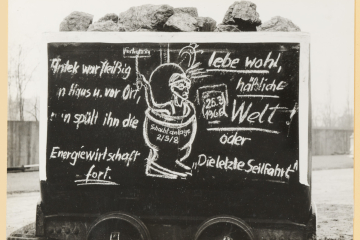 Antek war fleißig
in Haus u. vor Ort,
nun spült ihn die
Energiewirtschaft
fort.
Schachtanlage
2/5/8
25.3
1966
lebe wohl,
häßliche
Welt!
oder
"Die letzte Seilfahrt"